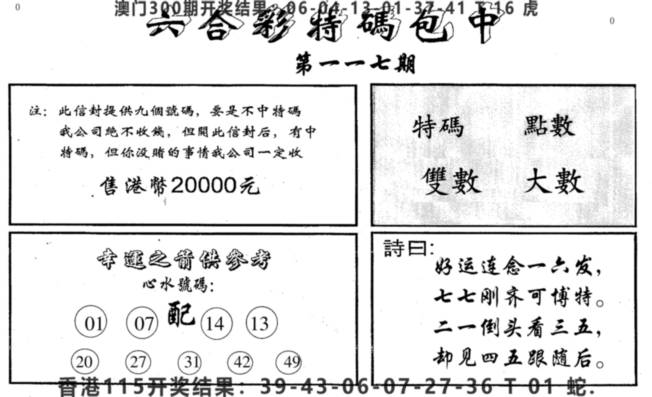 澳门300期开奖结果:06-04-13-01-37-41 T 16 虎
六合彩特碼包中
第一一七期
注：此信封提供九個號碼，要是不中特碼
我公司绝不收錢，但開此信封后，有中
特碼，但你没賭的事情我公司一定收
售港幣20000元
特碼 點數
雙數 大數
幸運之箭供參考
心水號碼:
01 07 配 14 13
20 27 31 42 49
詩曰:
好运连念一六发，
七七刚齐可博特。
二一倒头看三五，
却见四五跟随后。
香港115开奖结果：39-43-06-07-27-36 T 01 蛇.